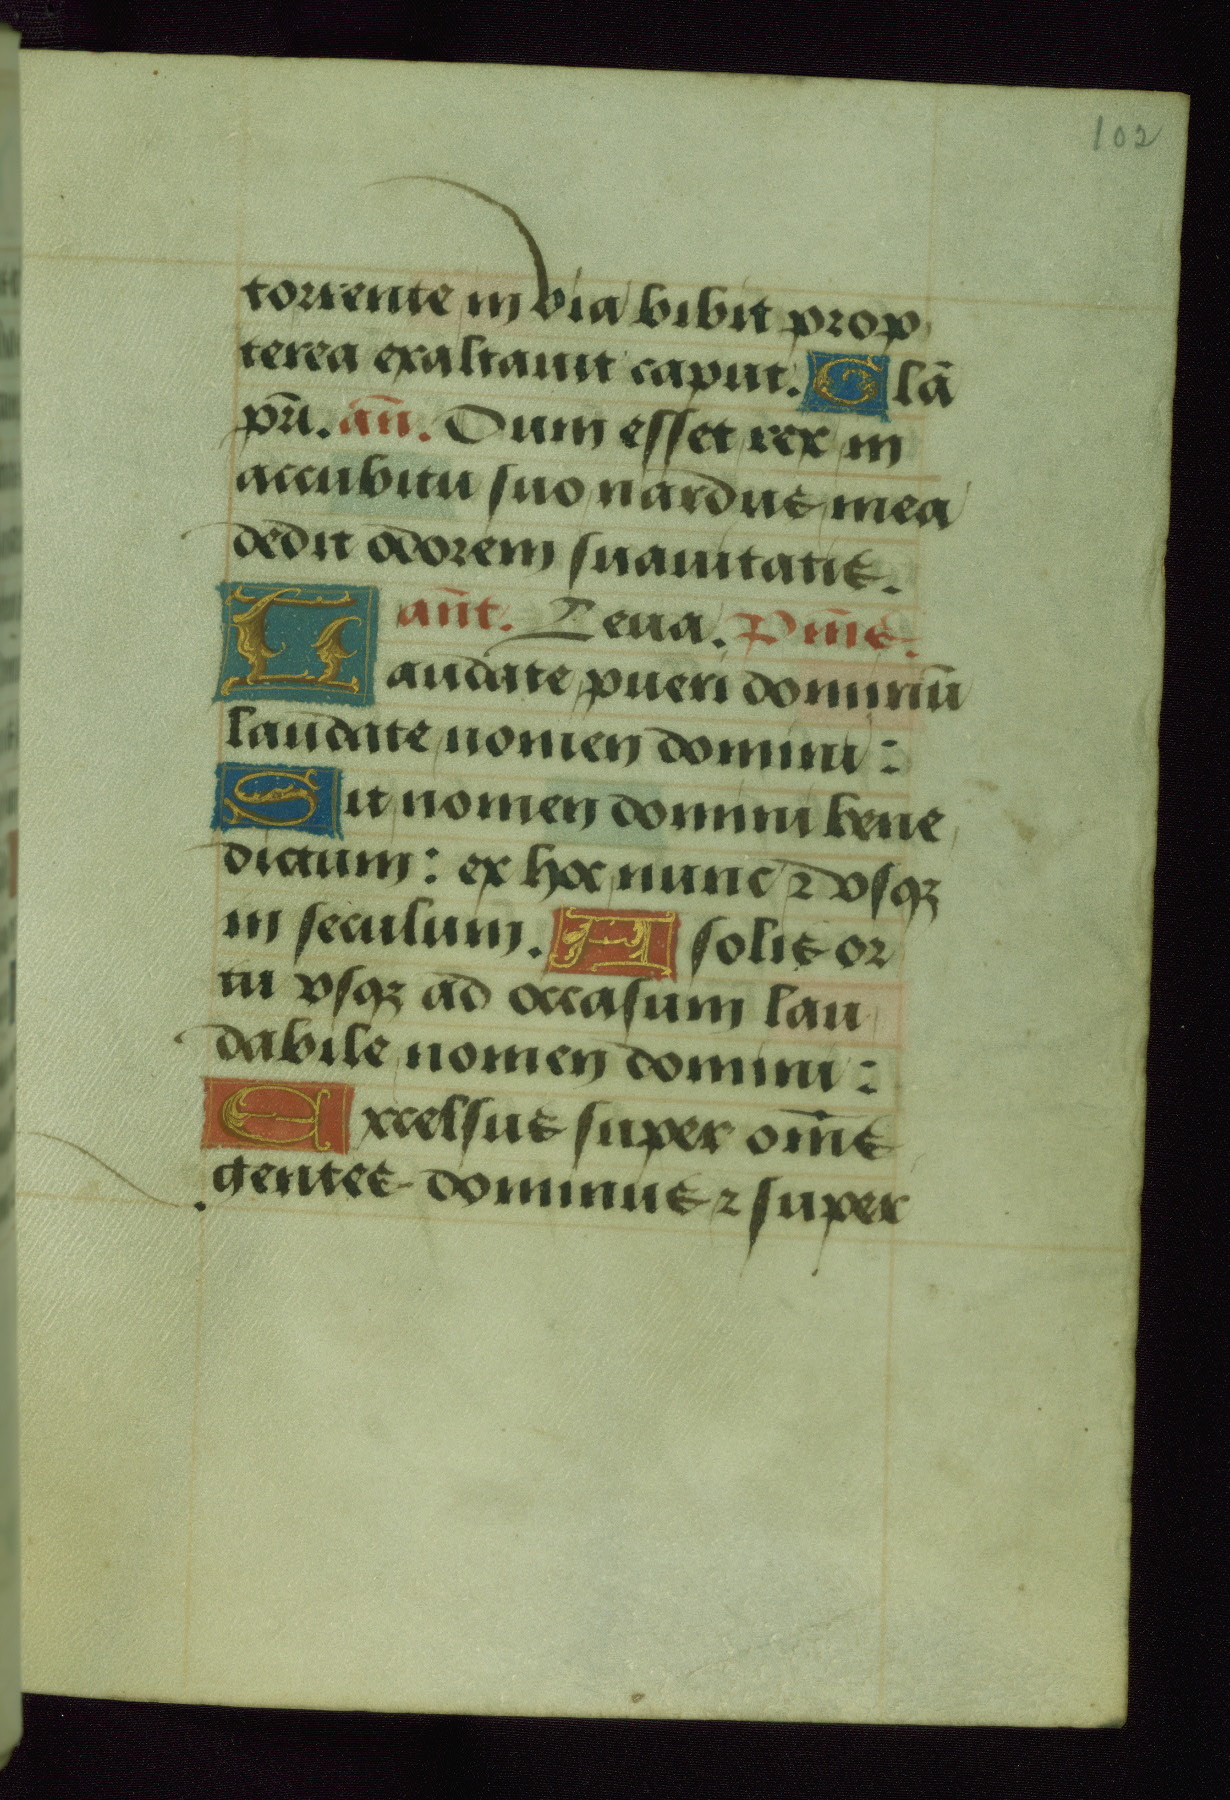 102
torrente in via bibit prop
terea exaltauit caput. Glã
pñi. añ. Dum esset rex in
accubitu suo nardus mea
dedit odorem suauitatis.
añt. Leua. Pms̃.
Laudate pueri dominũ
laudate nomen domini:
Sit nomen domini bene
dictum: ex hoc nunc ⁊ vsqꝫ
in seculum. A solis or
tu vsqꝫ ad occasum lau
dabile nomen domini:
Excelsus super om̃s
gentes dominus ⁊ super